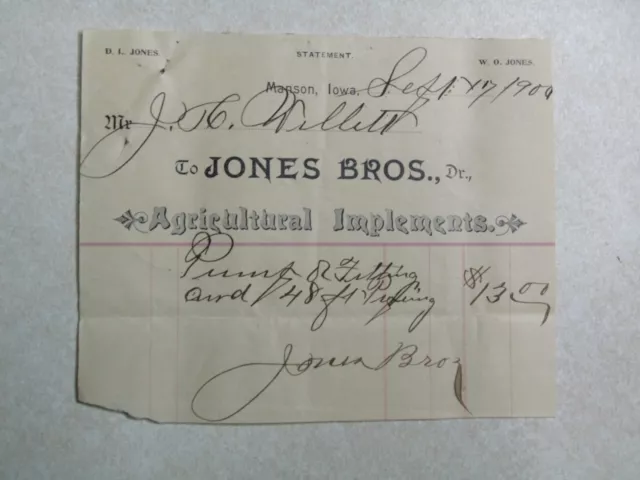 D. L. JONES. STATEMENT. W. O. JONES.
Manson, Iowa, Sept. 17 1900
Mr J. H. Willett
To JONES BROS., Dr.,
Agricultural Implements.
Pump & Fitting
and 48 ft Piping $13.00
Jones Bros